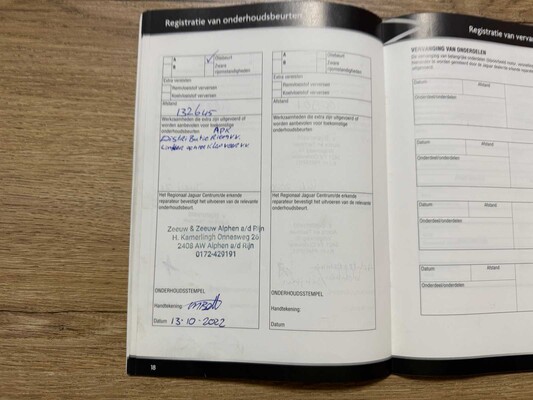 Registratie van onderhoudsbeurten
A
B
Oliebeurt
Zware
rijomstandigheden
Extra vereisten
Remvloeistof verversen
Koelvloeistof verversen
Afstand
132645
Werkzaamheden die extra zijn uitgevoerd of
worden aanbevolen voor toekomstige
onderhoudsbeurten
APK
Distributie Riem v.v.
Het Regionaal Jaguar Centrum/de erkende
reparateur bevestigt het uitvoeren van de relevante
onderhoudsbeurt.
Zeeuw & Zeeuw Alphen a/d Rijn
H. Kamerlingh Onnesweg 26
2408 AW Alphen a/d Rijn
0172-429191
ONDERHOUDSSTEMPEL
Handtekening:
Datum 13-10-2022
18
A
B
Oliebeurt
Zware
rijomstandigheden
Extra vereisten
Remvloeistof verversen
Koelvloeistof verversen
Afstand
Werkzaamheden die extra zijn uitgevoerd of
worden aanbevolen voor toekomstige
onderhoudsbeurten
Het Regionaal Jaguar Centrum/de erkende
reparateur bevestigt het uitvoeren van de relevante
onderhoudsbeurt.
ONDERHOUDSSTEMPEL
Handtekening:
Datum
Registratie van verva
VERVANGING VAN ONDERDELEN
Datum Afstand
Onderdeel/onderdelen
Datum Afstand
Onderdeel/onderdelen
Datum Afstand
Onderdeel/onderdelen
Datum Afstand
Onderdeel/onderdelen